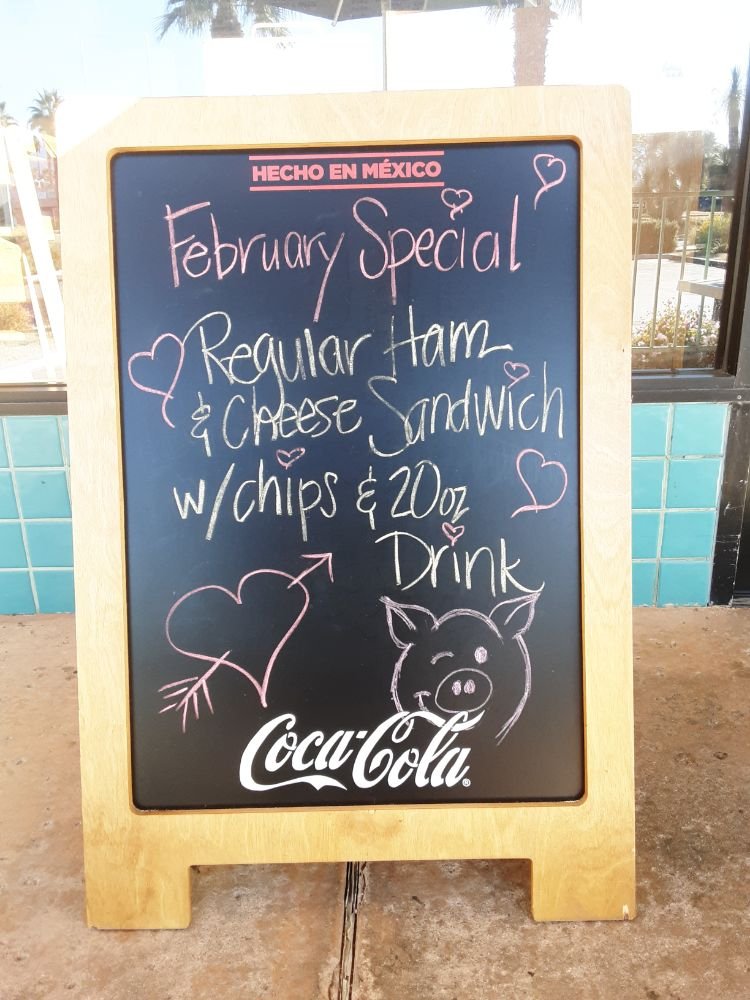 HECHO EN MÉXICO
February Special
Regular Ham
& Cheese Sandwich
w/chips & 20oz
Drink
Coca-Cola®